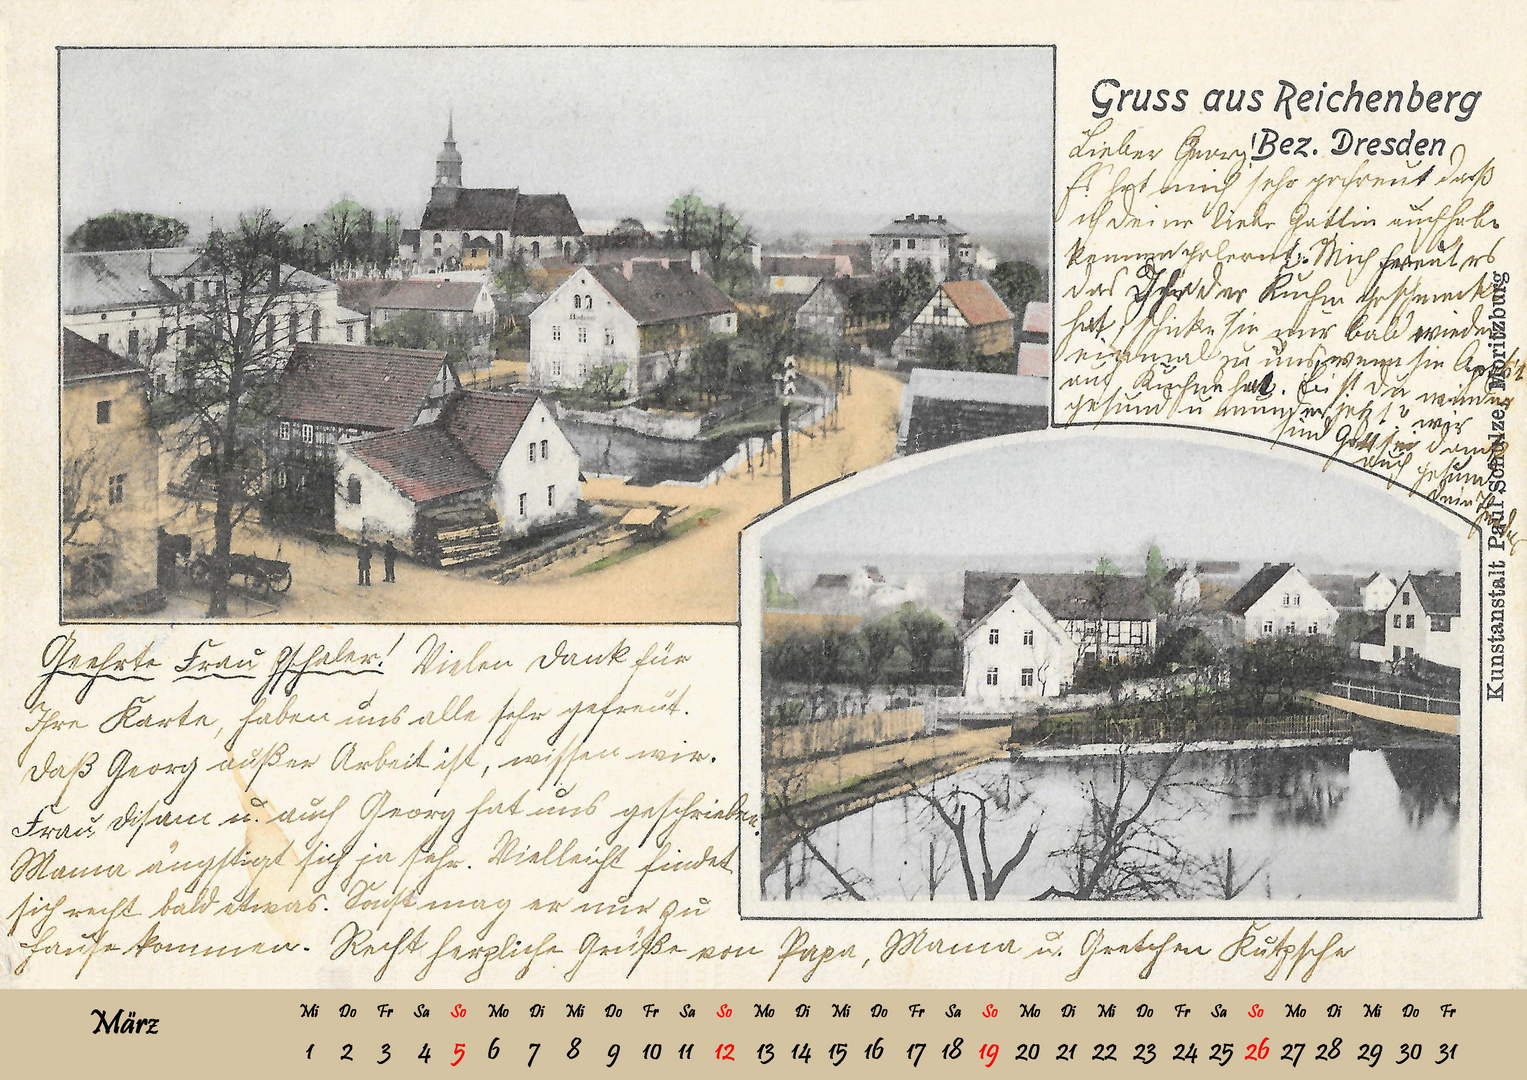 Gruss aus Reichenberg
Bez. Dresden
Lieber Georg!
Es hat mich sehr gefreut daß
ich deine liebe Gattin auch habe
kennen gelernt. Mich freut es
das Ihr der Kuchen geschmeckt
hat, schicke sie nur bald wieder
einmal zu uns wenn sie
auf Kuchen hat. bist du wieder
gesund u munter jetzt wir
sind Gott sei dank
auch gesund
Dein
Kunstanstalt Paul Schulze, Moritzburg
Geehrte Frau Zschaler! Vielen Dank für
Ihre Karte, haben uns alle sehr gefreut.
Daß Georg außer Arbeit ist, wissen wir.
Frau u. auch Georg hat uns geschrieben.
Mama ängstigt sich ja sehr. Vielleicht findet
sich recht bald etwas. Sonst mag er nur zu
Hause kommen. Recht herzliche Grüße von Papa, Mama u. Gretchen Kutzsche
März
Mi Do Fr Sa So Mo Di Mi Do Fr Sa So Mo Di Mi Do Fr Sa So Mo Di Mi Do Fr Sa So Mo Di Mi Do Fr
1 2 3 4 5 6 7 8 9 10 11 12 13 14 15 16 17 18 19 20 21 22 23 24 25 26 27 28 29 30 31